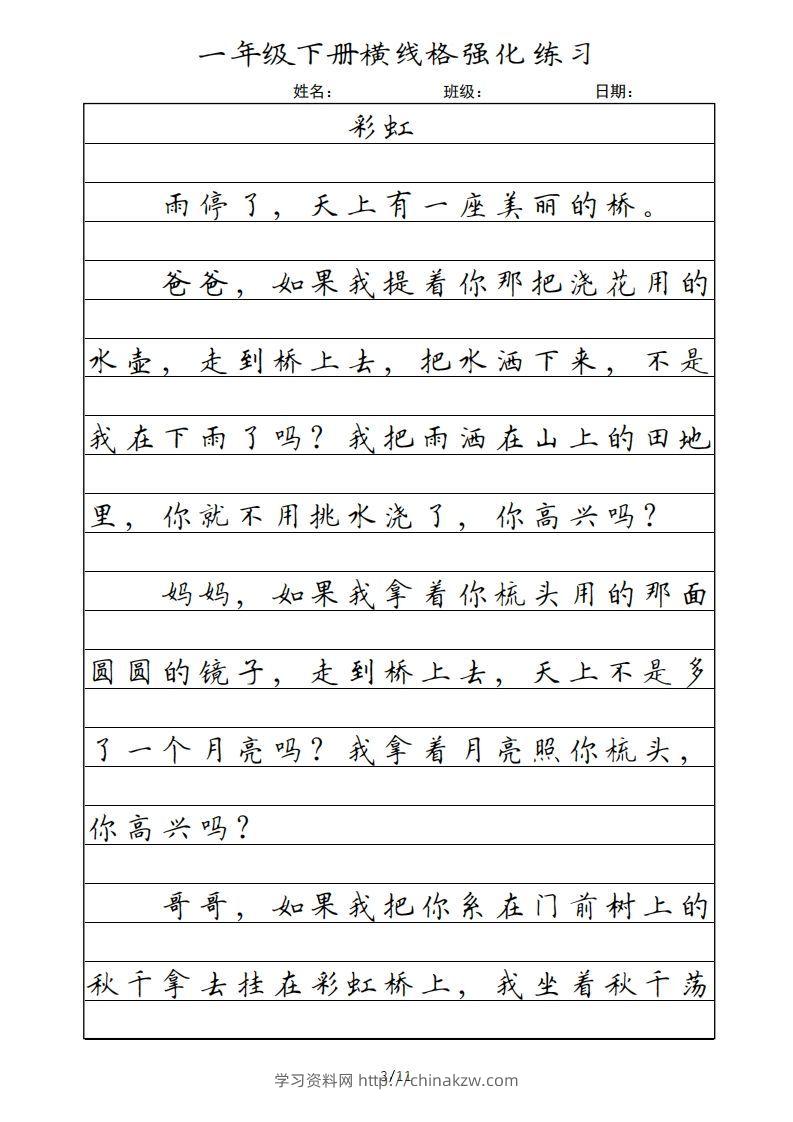 一年级下册横线格强化练习
姓名: 班级: 日期:
彩虹
雨停了，天上有一座美丽的桥。
爸爸，如果我提着你那把浇花用的
水壶，走到桥上去，把水洒下来，不是
我在下雨了吗？我把雨洒在山上的田地
里，你就不用挑水浇了，你高兴吗？
妈妈，如果我拿着你梳头用的那面
圆圆的镜子，走到桥上去，天上不是多
了一个月亮吗？我拿着月亮照你梳头，
你高兴吗？
哥哥，如果我把你系在门前树上的
秋千拿去挂在彩虹桥上，我坐着秋千荡
3/11
学习资料网 http://chinakzw.com